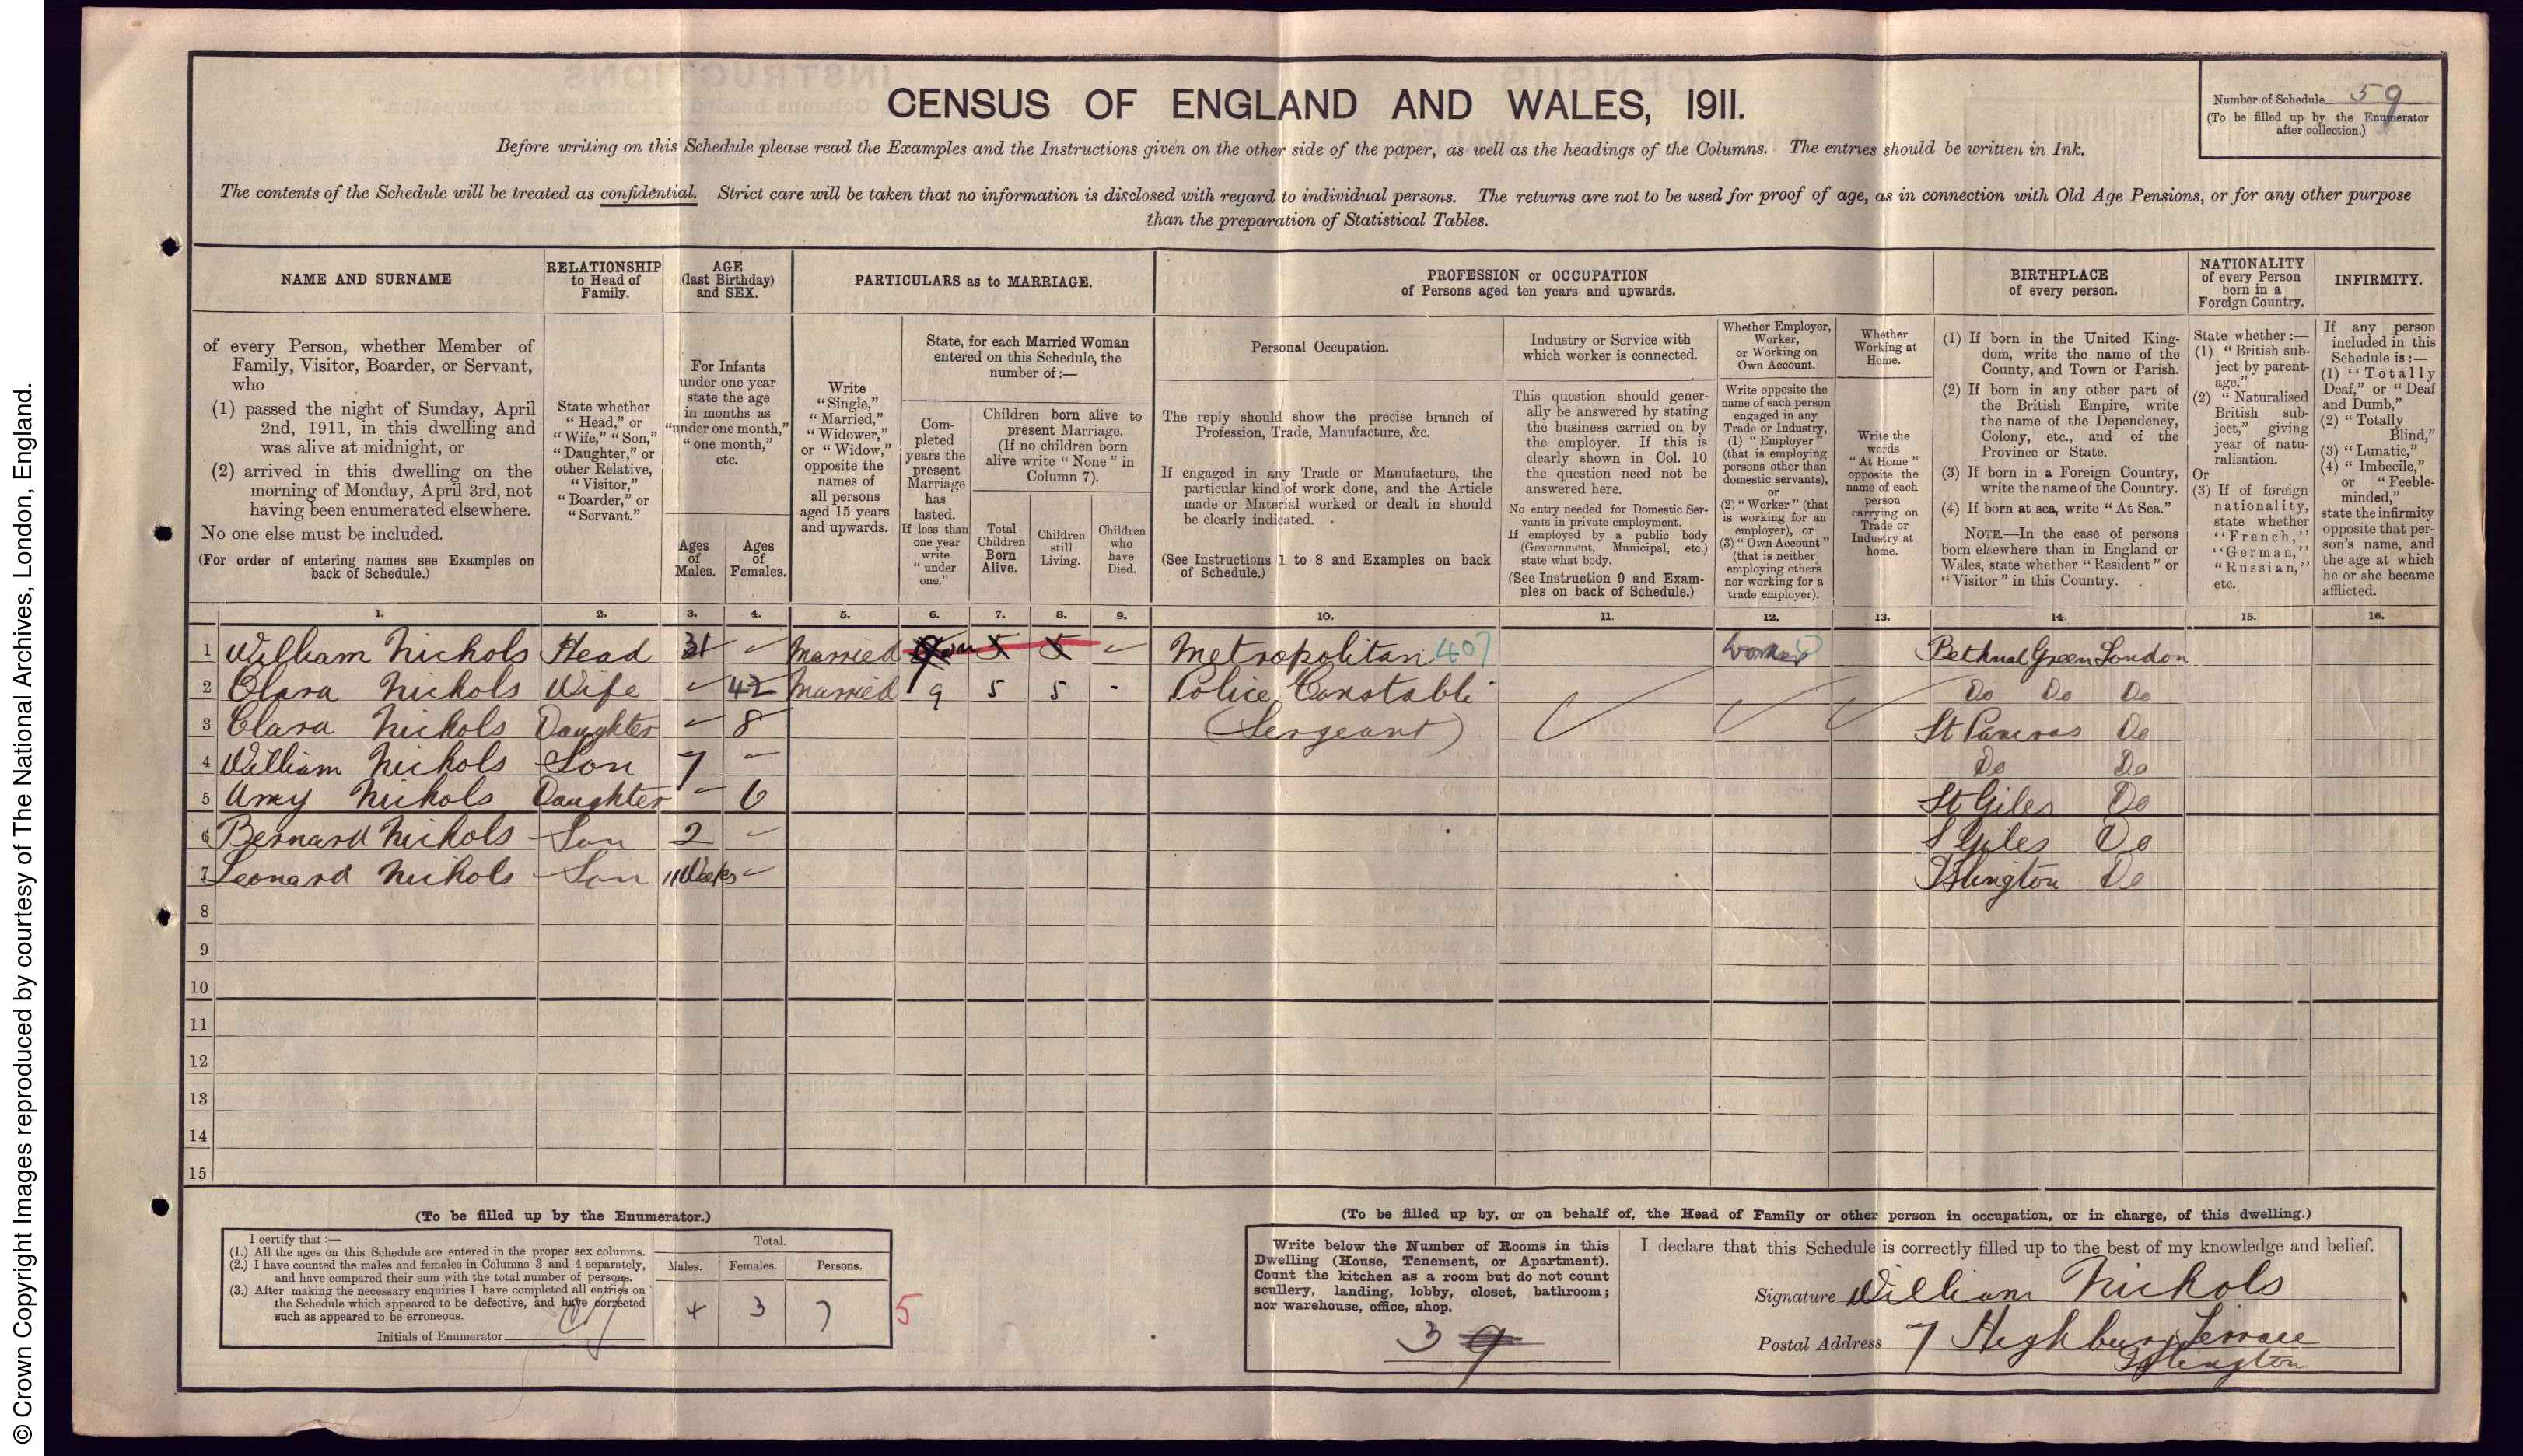 © Crown Copyright Images reproduced by courtesy of The National Archives, London, England.
CENSUS OF ENGLAND AND WALES, 1911.
Number of Schedule 59
(To be filled up by the Enumerator
after collection.)
Before writing on this Schedule please read the Examples and the Instructions given on the other side of the paper, as well as the headings of the Columns. The entries should be written in Ink.
The contents of the Schedule will be treated as confidential. Strict care will be taken that no information is disclosed with regard to individual persons. The returns are not to be used for proof of age, as in connection with Old Age Pensions, or for any other purpose
than the preparation of Statistical Tables.
NAME AND SURNAME
of every Person, whether Member of
Family, Visitor, Boarder, or Servant,
who
(1) passed the night of Sunday, April
2nd, 1911, in this dwelling and
was alive at midnight, or
(2) arrived in this dwelling on the
morning of Monday, April 3rd, not
having been enumerated elsewhere.
No one else must be included.
(For order of entering names see Examples on
back of Schedule.)
RELATIONSHIP
to Head of
Family.
State whether
"Head," or
"Wife," "Son,"
"Daughter," or
other Relative,
"Visitor,"
"Boarder," or
"Servant."
AGE
(last Birthday)
and SEX.
For Infants
under one year
state the age
in months as
"under one month,"
"one month,"
etc.
Ages
of
Males.
Ages
of
Females.
PARTICULARS as to MARRIAGE.
Write
"Single,"
"Married,"
"Widower,"
or "Widow,"
opposite the
names of
all persons
aged 15 years
and upwards.
State, for each Married Woman
entered on this Schedule, the
number of:—
Com-
pleted
years the
present
Marriage
has
lasted.
If less than
one year
write
"under
one."
Children born alive to
present Marriage.
(If no children born
alive write "None" in
Column 7).
Total
Children
Born
Alive.
Children
still
Living.
Children
who
have
Died.
PROFESSION or OCCUPATION
of Persons aged ten years and upwards.
Personal Occupation.
The reply should show the precise branch of
Profession, Trade, Manufacture, &c.
If engaged in any Trade or Manufacture, the
particular kind of work done, and the Article
made or Material worked or dealt in should
be clearly indicated.
(See Instructions 1 to 8 and Examples on back
of Schedule.)
Industry or Service with
which worker is connected.
This question should gener-
ally be answered by stating
the business carried on by
the employer. If this is
clearly shown in Col. 10
the question need not be
answered here.
No entry needed for Domestic Ser-
vants in private employment.
If employed by a public body
(Government, Municipal, etc.)
state what body.
(See Instruction 9 and Exam-
ples on back of Schedule.)
Whether Employer,
Worker,
or Working on
Own Account.
Write opposite the
name of each person
engaged in any
Trade or Industry,
(1) "Employer"
(that is employing
persons other than
domestic servants),
or
(2) "Worker" (that
is working for an
employer), or
(3) "Own Account"
(that is neither
employing others
nor working for a
trade employer).
Whether
Working at
Home.
Write the
words
"At Home"
opposite the
name of each
person
carrying on
Trade or
Industry at
home.
BIRTHPLACE
of every person.
(1) If born in the United King-
dom, write the name of the
County, and Town or Parish.
(2) If born in any other part of
the British Empire, write
the name of the Dependency,
Colony, etc., and of the
Province or State.
(3) If born in a Foreign Country,
write the name of the Country.
(4) If born at sea, write "At Sea."
NOTE.—In the case of persons
born elsewhere than in England or
Wales, state whether "Resident" or
"Visitor" in this Country.
NATIONALITY
of every Person
born in a
Foreign Country.
State whether:—
(1) "British sub-
ject by parent-
age."
(2) "Naturalised
British sub-
ject," giving
year of natu-
ralisation.
Or
(3) If of foreign
nationality,
state whether
"French,"
"German,"
"Russian,"
etc.
INFIRMITY.
If any person
included in this
Schedule is:—
(1) "Totally
Deaf," or "Deaf
and Dumb,"
(2) "Totally
Blind,"
(3) "Lunatic,"
(4) "Imbecile,"
or "Feeble-
minded,"
state the infirmity
opposite that per-
son's name, and
the age at which
he or she became
afflicted.
1. 2. 3. 4. 5. 6. 7. 8. 9. 10. 11. 12. 13. 14. 15. 16.
1 William Nichols Head 31 - Married 5 5 - Metropolitan 407 Worker Bethnal Green London
2 Clara Nichols Wife - 42 Married 9 5 5 - Police Constable Do Do Do
3 Clara Nichols Daughter - 8 (Sergeant) St Pancras Do
4 William Nichols Son 7 - Do Do
5 Amy Nichols Daughter - 6 St Giles Do
6 Bernard Nichols Son 2 - S Giles Do
7 Leonard Nichols Son 11 Weeks - Islington Do
8
9
10
11
12
13
14
15
(To be filled up by the Enumerator.)
I certify that:—
(1.) All the ages on this Schedule are entered in the proper sex columns.
(2.) I have counted the males and females in Columns 3 and 4 separately,
and have compared their sum with the total number of persons.
(3.) After making the necessary enquiries I have completed all entries on
the Schedule which appeared to be defective, and have corrected
such as appeared to be erroneous.
Initials of Enumerator
Total.
Males. Females. Persons.
4 3 7 5
(To be filled up by, or on behalf of, the Head of Family or other person in occupation, or in charge, of this dwelling.)
Write below the Number of Rooms in this
Dwelling (House, Tenement, or Apartment).
Count the kitchen as a room but do not count
scullery, landing, lobby, closet, bathroom;
nor warehouse, office, shop.
3 9
I declare that this Schedule is correctly filled up to the best of my knowledge and belief.
Signature William Nichols
Postal Address 7 Highbury Terrace
Islington